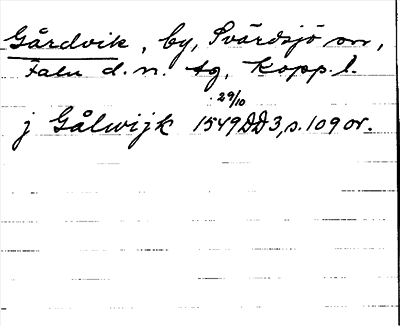 Gårdvik, by, Svärdsjö sn,
Falu d. n. tg, Kopp. l.
29/10
j Gålwijk 1549 DD 3, s. 109 or.